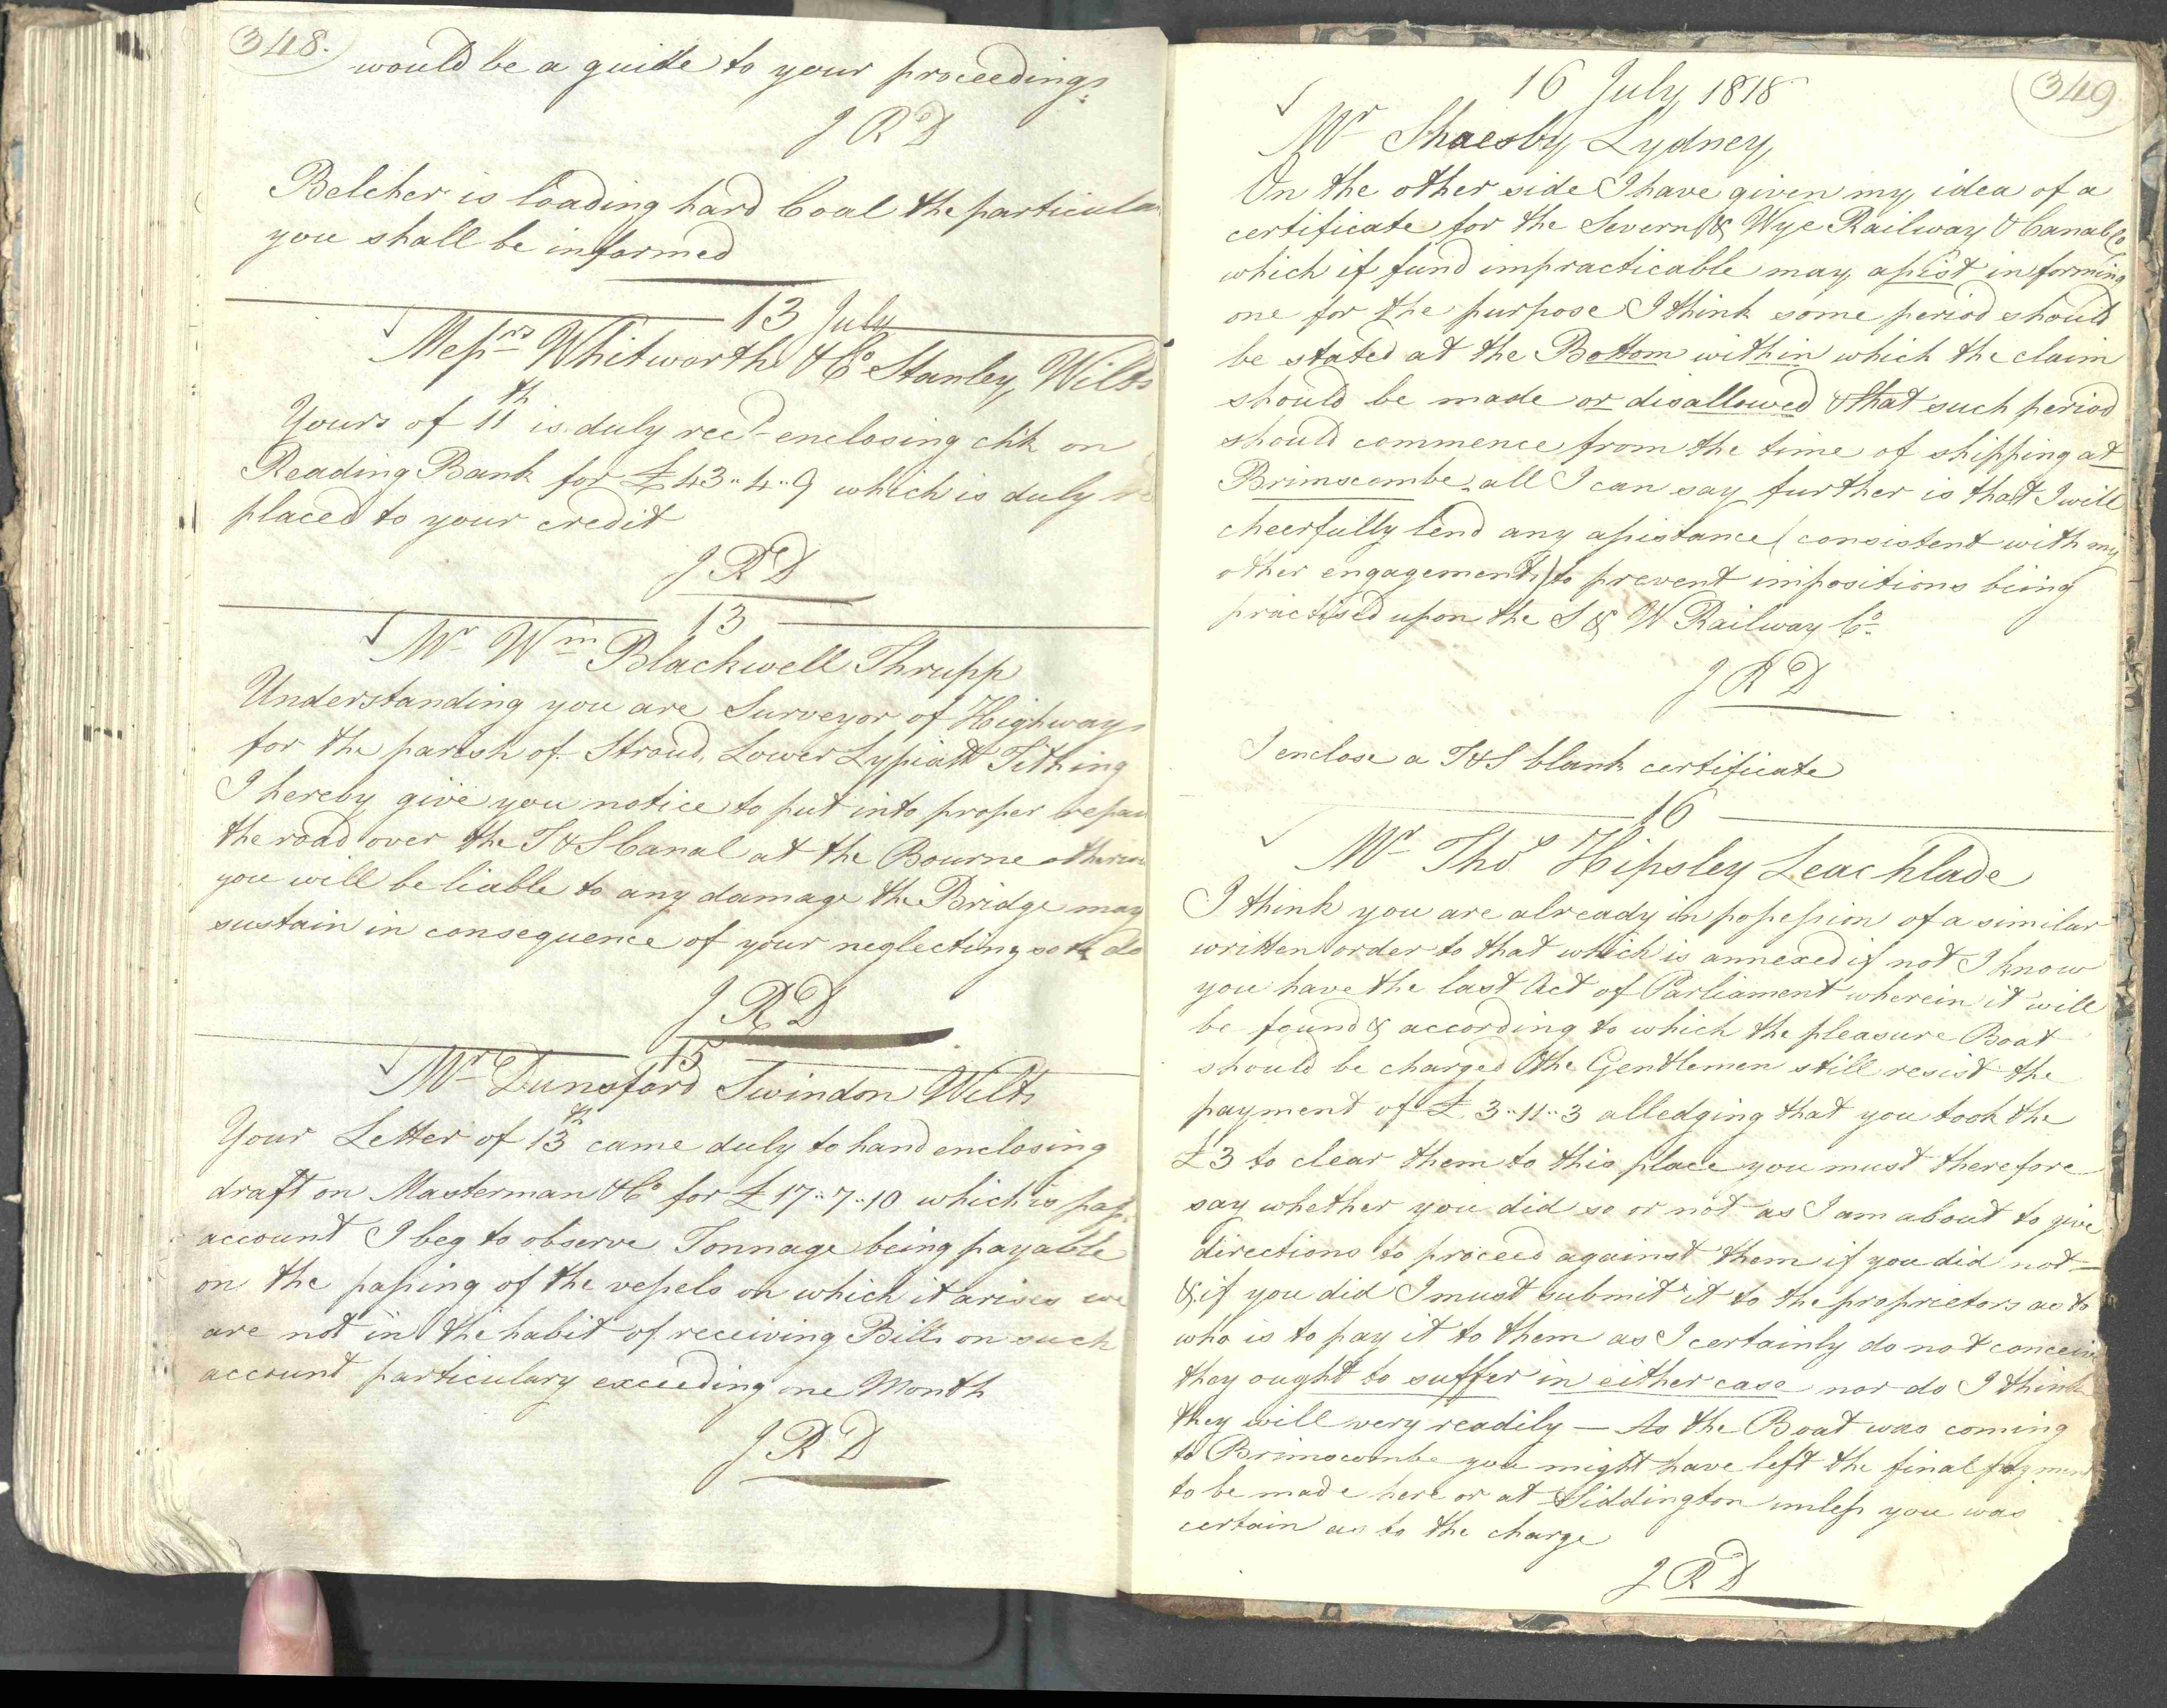 348.
would be a guide to your proceedings
J R D
Belcher is loading hard Coal the particular
you shall be informed
13 July
Messrs Whitworth & Co Stanley, Wilts
Yours of 11th is duly recd enclosing chk on
Reading Bank for £43..4..9 which is duly
placed to your credit
J R D
13
Mr Wm Blackwell Thrupp
Understanding you are Surveyor of Highways
for the parish of Stroud, Lower Lypiatt Tithing
I hereby give you notice to put into proper repair
the road over the T&S Canal at the Bourne otherwise
you will be liable to any damage the Bridge may
sustain in consequence of your neglecting so to do
J R D
15
Mr Dunsford Swindon Wilts
Your Letter of 13th came duly to hand enclosing
draft on Masterman & Co for £17..7..10 which is pass
account I beg to observe Tonnage being payable
on the passing of the vessels on which it arises we
are not in the habit of receiving Bills on such
account particulary exceeding one Month
J R D
349
16 July 1818
Mr Lydney
On the other side I have given my idea of a
certificate for the Severn & Wye Railway & Canal Co
which if fund impracticable may assist in forming
one for the purpose I think some period should
be stated at the Bottom within which the claim
should be made or disallowed & that such period
should commence from the time of shipping at
Brimscombe, all I can say further is that I will
cheerfully lend any assistance (consistent with my
other engagements) to prevent impositions being
practised upon the S & W Railway Co
J R D
I enclose a T&S blank certificate
16
Mr Thos Hipsley Leachlade
I think you are already in possession of a similar
written order to that which is annexed if not I know
you have the last Act of Parliament wherein it will
be found & according to which the pleasure Boat
should be charged the Gentlemen still resist the
payment of £3..11..3 alledging that you took the
£3 to clear them to this place you must therefore
say whether you did so or not as I am about to give
directions to proceed against them if you did not —
& if you did I must submit it to the proprietors as to
who is to pay it to them as I certainly do not conceive
they ought to suffer in either case nor do I think
they will very readily — As the Boat was coming
to Brimscombe you might have left the final payment
to be made here or at Siddington unless you was
certain as to the charge
J R D